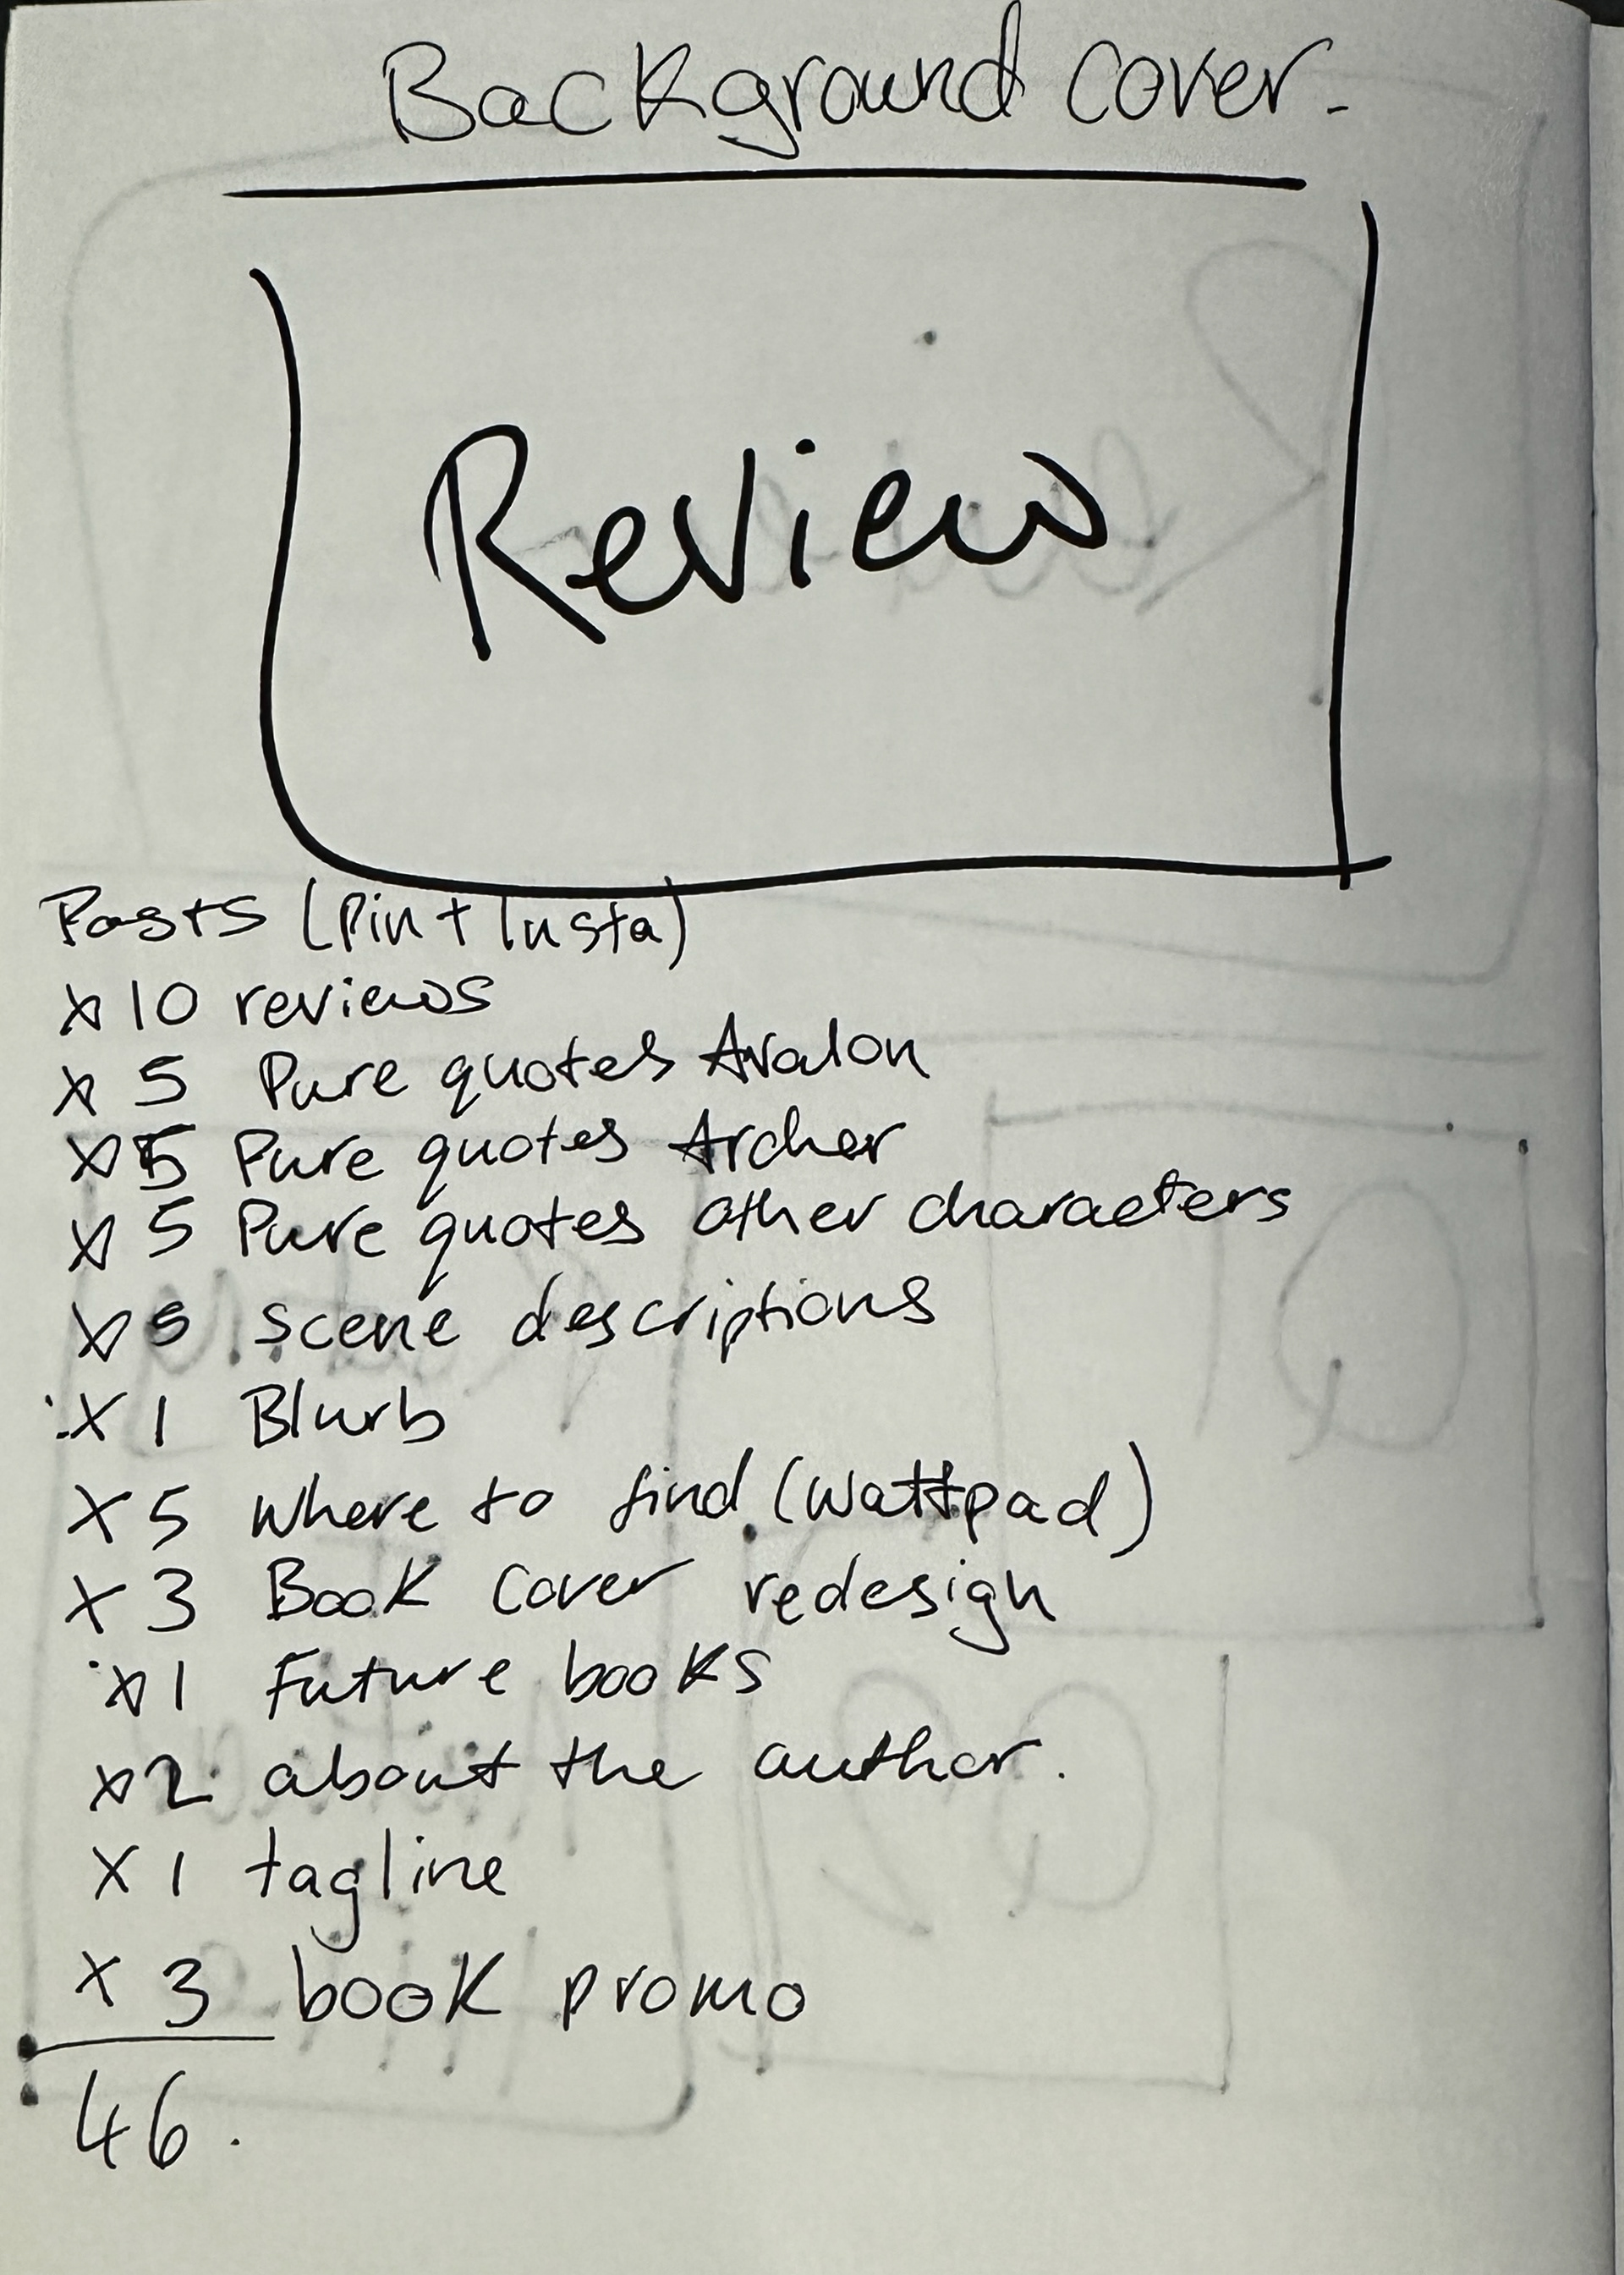 Background cover.
Review
Posts (Pin + Insta)
x 10 reviews
x 5 Pure quotes Avalon
x 5 Pure quotes Archer
x 5 Pure quotes other characters
x 5 scene descriptions
x 1 Blurb
x 5 where to find (wattpad)
x 3 Book cover redesign
x 1 Future books
x 2 about the author.
x 1 tagline
x 3 book promo
46.